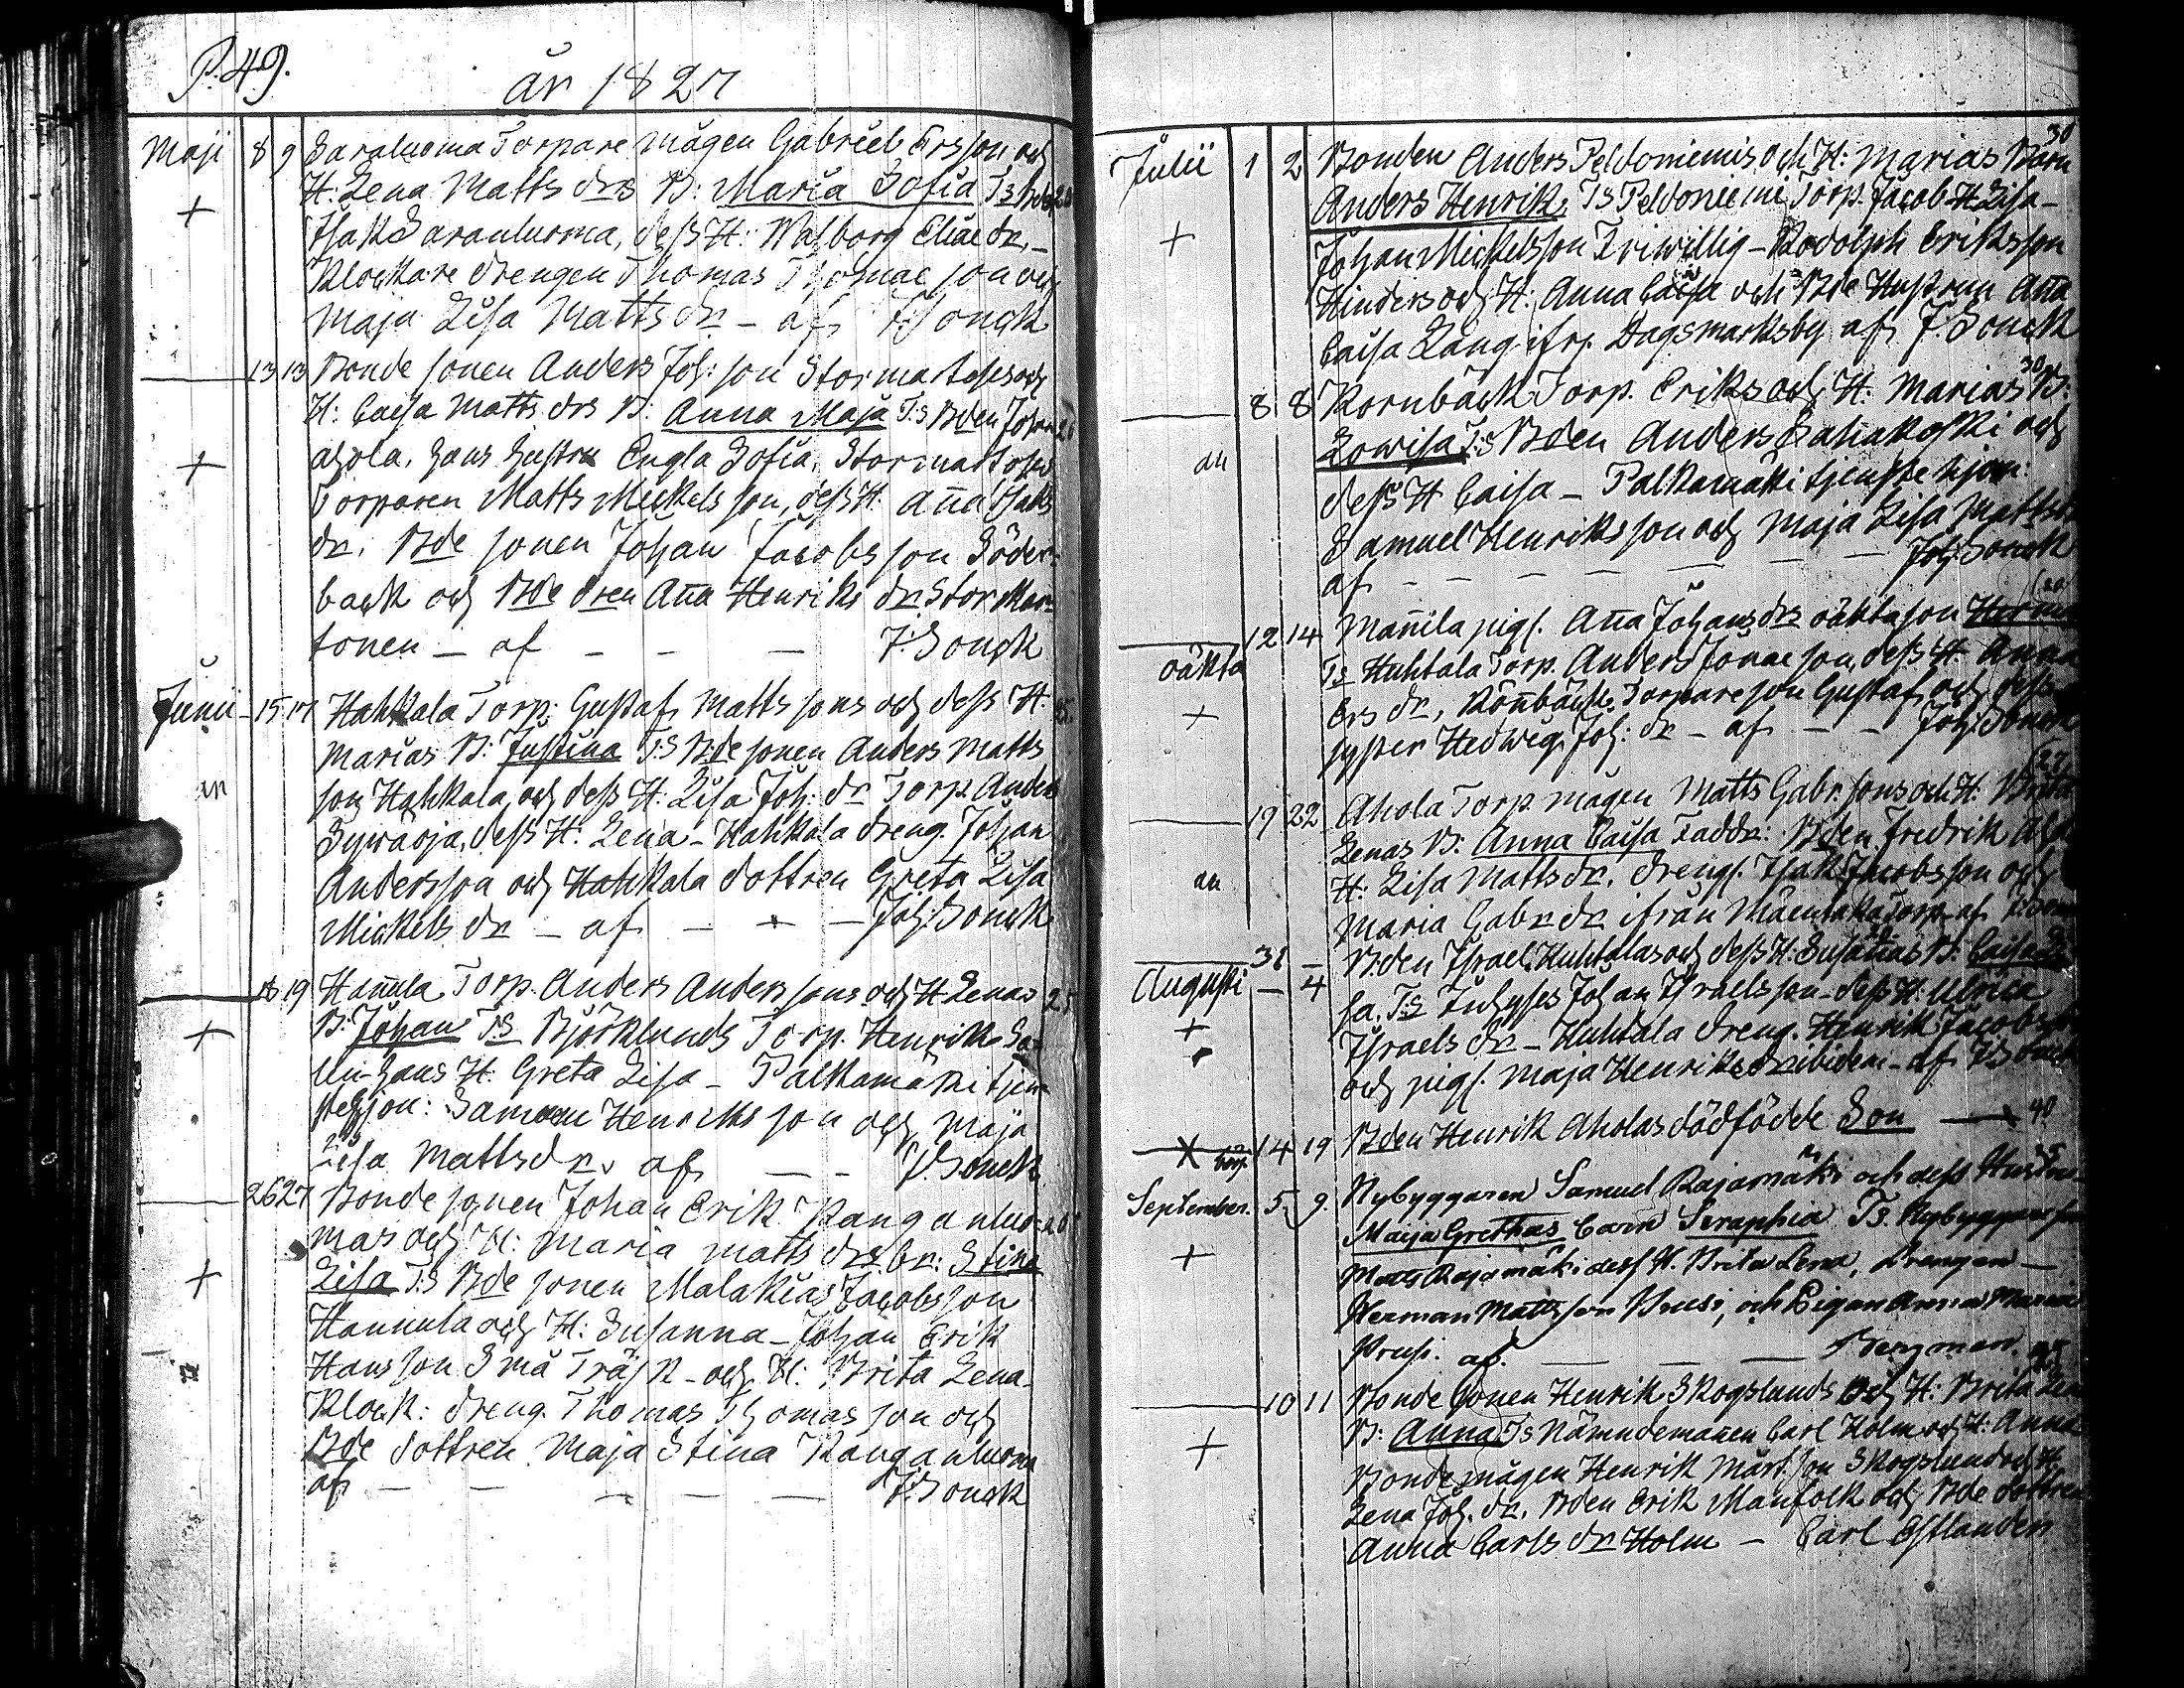 P. 49.
år 1827
Maji 8 9 Saraluoma Torpare mågen Gabriel Ersson och
H: Lena Matts drs B: Maria Sofia Ts Bden 20
+ Isak Saraluoma, dess H: Walborg Eliæ dr. –
Klockare drengen Thomas Thomæ son och
Maja Lisa Matts dr – af J: Sonck
13 13 Bonde sonen Anders Joh: son Stormartens och
H: Caisa Matts drs B: Anna Maja T:s Bden Johan
+ ahola, hans hustru Engla Sofia, Stormartons
Torparen Matts Mickels son, dess H: Aña Isaks
dr. Bde sonen Johan Jacobs son Söder-
back och Bde dren Aña Henriks dr Stormar-
tonen – af – – – J: Sonck
Junii – 15 17 Hahkala Torp: Gustaf Matts sons och dess H: 25.
Marias B: Justina T:s Bde sonen Anders Matts
son Hahkala, och dess H: Lisa Joh: dr Torp. Anders
Sywäoja, dess H: Lena – Hahkala dreng. Johan
Andersson och Hahkala dottren Greta Lisa
Mickels dr – af – – – Joh: Sonck
18 19 Hañula Torp. Anders Anders sons och H: Lenas 25
+ B: Johan Ts Björklunds Torp. Henrik
hans H: Greta Lisa – Palkamäki tjen-
stehjon: Samuel Henriks son och Maja
Lisa Mattsdr. af – – J: Sonck
26 27 Bonde sonen Johan Erik Kanganluo- 20
mas och H: Maria Matts drs br: Stina
+ Lisa T:s Bde sonen Malakias Jacobsson
Hannula och H: Susanna – Johan Erik
Hansson Små Träsk – och H: Brita Lena –
Klock: dreng. Thomas Thomas son och
Bde dottren Maja Stina Kanganluoma
af – – – – – J: Sonck
30
Julii 1 2 Bonden Anders Peldoniemis och H: Marias Barn
Anders Henrik, Ts Peldoniemi Torp. Jacob H: Lisa –
+ Johan Mickelsson Friwillig – Rodolph Eriksson
Hinders och H: Anna Caisa och Bde Hustrun Aña
Caisa Lång ifr. Dagsmarksby af J: Sonck
30
8 8 Kornbäck Torp. Eriks och H: Marias B:
Lowisa T:s Bden Anders Sahakoski och
dess H: Caisa – Palkamäki tjenste hjon:
Samuel Henriks son och Maja Lisa Mattsdr
af – – – – – – Joh: Sonck
12 14 Mañila pigs. Aña Johans drs oäkta son Herman
oäkta Ts Huhtala Torp. Anders Jonæ son, dess H: Anna
+ Ers dr, Röñbäcks Torpare son Gustaf, och dess
syster Hedwig Joh: dr – af – – Joh: Sonck
27
19 22 Ahola Torp mågen Matts Gabr. sons och H: Brita
Lenas B: Anna Caisa Faddr: Bden Fredrik
H: Lisa Mattsdr. drengs. Isak Jacobsson och
Maria Gabr dr ifrån Torp. af
31 – Bden Israel Huhtalas och dess H: Susañas B: Caisa Li-
Augusti – 4 sa. Ts Johan Israels son – dess H: Ulrica
+ Israels dr – Huhtala dreng. Henrik Jacobsson
och pigs. Maja Henriks dr ibidem – af J: Sonck
14 19 Bden Henrik Aholas dödfödde Son – 40
September. 5. 9. Nybyggaren Samuel Rajamäki och dess Hustru
Maija Grethas barn Seraphia Ts. Nybyggare
+ Matts Rajamäki dess H. Brita Lena, Drengen –
Herman Mattsson Prusi, och Pigan Anna Maria
Prusi. af. – – – Bergman.
10 11 Bonde sonen Henrik Skogslunds och H: Brita
+ B: Anna Ts Nämndemanen Carl Holm och H: Anna
Bonde mågen Henrik Mårt. son Skogslund och H:
Lena Joh. dr. Bden Erik Manfolk och Bde dottren
Anna Carls dr Holm – Carl Estlander